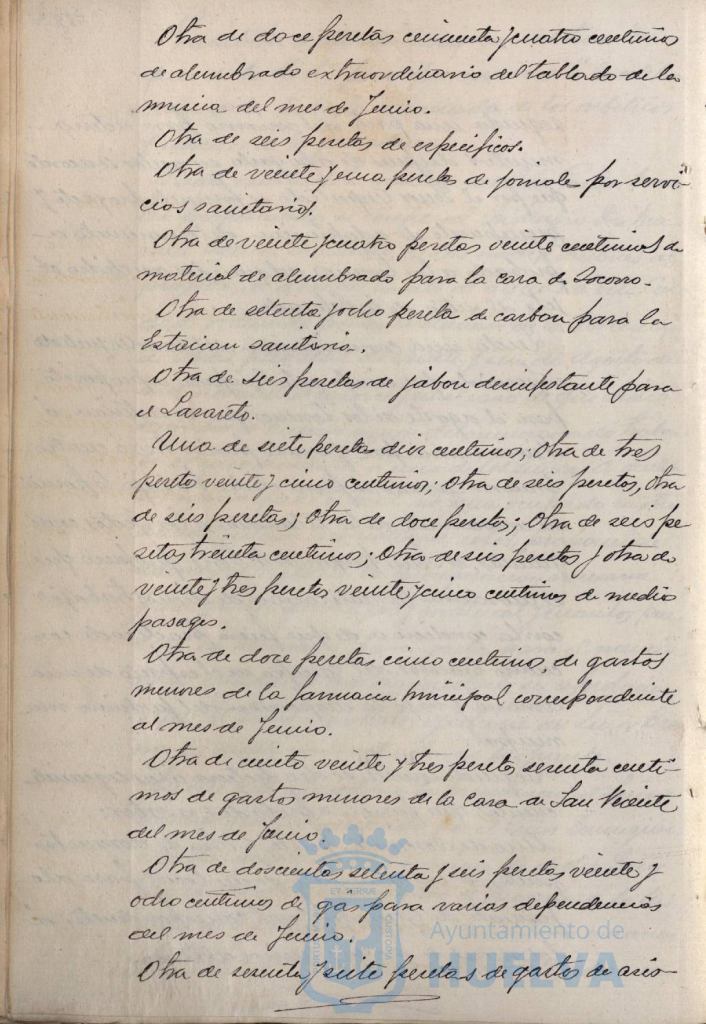 Otra de doce pesetas cincuenta y cuatro centimos
de alumbrado extraordinario del tablado de la
musica del mes de Junio.
Otra de seis pesetas de especificos.
Otra de veinte y una pesetas de jornales por servi-
cios sanitarios.
Otra de veinte y cuatro pesetas veinte centimos de
material de alumbrado para la casa de Socorro.
Otra de setenta y ocho pesetas de carbon para la
Estacion sanitaria.
Otra de seis pesetas de jabon desinfestante para
el Lazareto.
Una de siete pesetas diez centimos; Otra de tres
pesetas veinte y cinco centimos; Otra de seis pesetas, Otra
de seis pesetas; Otra de doce pesetas; Otra de seis pe
setas treinta centimos; Otra de seis pesetas y otra de
veinte y tres pesetas veinte y cinco centimos de medios
pasages.
Otra de doce pesetas cinco centimos, de gastos
menores de la farmacia municipal correspondiente
al mes de Junio.
Otra de ciento veinte y tres pesetas sesenta centi-
mos de gastos menores de la casa de San Vicente
del mes de Junio.
Otra de doscientas setenta y seis pesetas veinte y
ocho centimos de gas para varias dependencias
del mes de Junio.
Otra de sesenta y siete pesetas de gastos de aseo
Ayuntamiento de
HUELVA